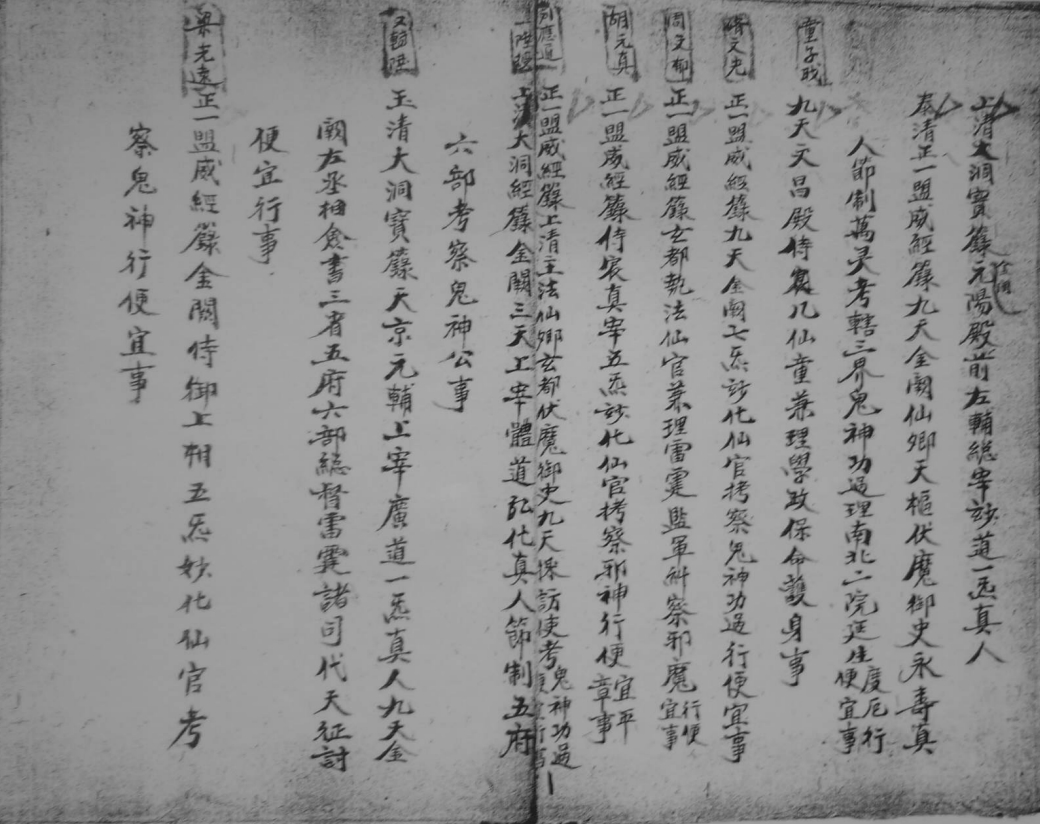 上清大洞寶籙元陽殿前左輔總宰妙道一炁真人
泰清正一盟威經籙九天金闕仙卿天樞伏魔御史永壽真
人節制萬灵考轄三界鬼神功過理南北二院延生度厄行便宜事
童子
九天文昌殿侍宸九仙童兼理學政保命護身事
文光
正一盟威經籙九天金闕七炁妙化仙官拷察鬼神功過行便宜事
周文郁
正一盟威經籙玄都執法仙官兼理雷霆監軍糾察邪魔行便宜事
胡元真
正一盟威經籙侍宸真宰五炁妙化仙官拷察邪神行便宜平章事
應運
正一盟威經籙上清主法仙卿玄都伏魔御史九天採訪使考鬼神功過
一陞
上清大洞經籙金闕三天上宰體道弘化真人節制五府
六部考察鬼神公事
又轉陞
玉清大洞寶籙天京元輔上宰廣道一炁真人九天金
闕左丞相僉書三省五府六部總督雷霆諸司代天征討
便宜行事
梁光遠
正一盟威經籙金闕侍御上相五炁妙化仙官考
察鬼神行便宜事